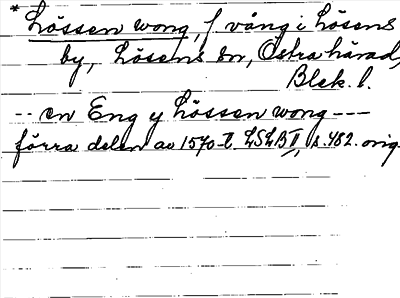 * Lössen wong, f. vång i Lösens
by, Lösens sn, Östra härad,
Blek. l.
-- en Eng y Lössen wong ---
förra delen av 1570-t. LSLB II, s. 482. orig.